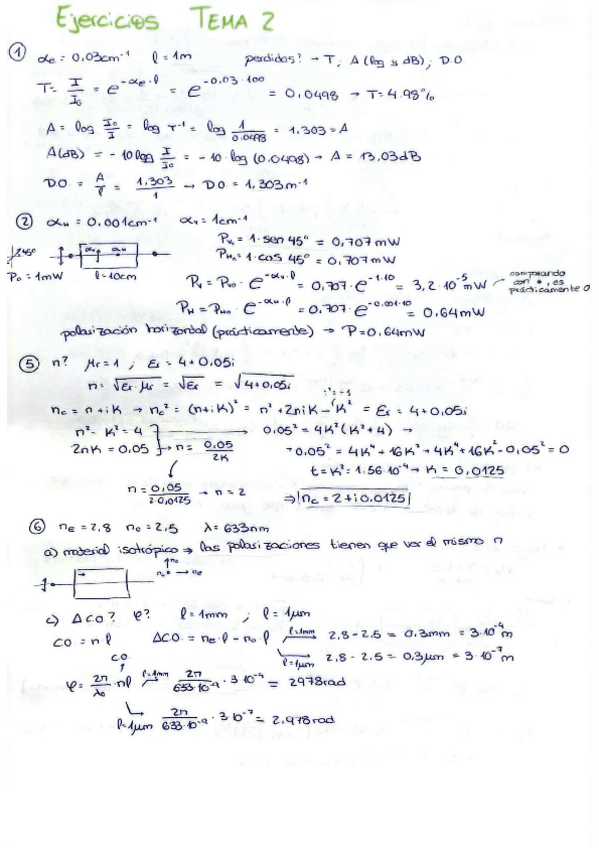 Ejercicios TEMA 2
① αe = 0,03cm⁻¹ l = 1m perdidas? → T, A (log y dB), D.O
T = I/I₀ = e^(-αe·l) = e^(-0.03·100) = 0,0498 → T = 4.98%
A = log I₀/I = log T⁻¹ = log 1/0.0498 = 1.303 = A
A(dB) = -10log I/I₀ = -10·log(0.0498) → A = 13,03dB
DO = A/l = 1,303/1 → DO = 1,303m⁻¹
② αH = 0.001cm⁻¹ αv = 1cm⁻¹
Pv₀ = 1·sen 45° = 0,707 mW
PH₀ = 1·cos 45° = 0,707mW
45°
P₀ = 1mW l = 10cm
Pv = Pv₀·e^(-αv·l) = 0,707·e^(-1·10) = 3,2·10⁻⁵ mW
comparando con •, es prácticamente 0
PH = PH₀·e^(-αH·l) = 0,707·e^(-0.001·10) = 0,64mW
polarización horizontal (prácticamente) → P = 0,64mW
⑤ n? μr = 1 ; εr = 4 + 0,05i
n = √(εr·μr) = √εr = √(4+0,05i)
i² = -1
nc = n + iK → nc² = (n+iK)² = n² + 2niK - K² = εr = 4 + 0,05i
n² - K² = 4
0,05² = 4K²(K²+4) →
2nK = 0,05 → n = 0,05/2K
→ 0,05² = 4K⁴ + 16K² → 4K⁴ + 16K² - 0,05² = 0
t = K² = 1.56·10⁻⁴ → K = 0,0125
n = 0,05/2·0,0125 → n = 2 ⇒ |nc = 2 + i0,0125|
⑥ nE = 2,8 no = 2,5 λ = 633nm
a) material isotrópico ⇒ las polarizaciones tienen que ver el mismo n
c) ΔCO? φ? l = 1mm ; l = 1μm
CO = n·l ΔCO = ne·l - no·l l=1mm → 2,8 - 2.5 = 0.3mm = 3·10⁻⁴m
l=1μm → 2.8 - 2.5 = 0,3μm = 3·10⁻⁷m
CO
φ = 2π/λ₀ nl l=1mm → 2π/633·10⁻⁹ · 3·10⁻⁴ = 2978rad
l=1μm 2π/633·10⁻⁹ · 3·10⁻⁷ = 2.978rad